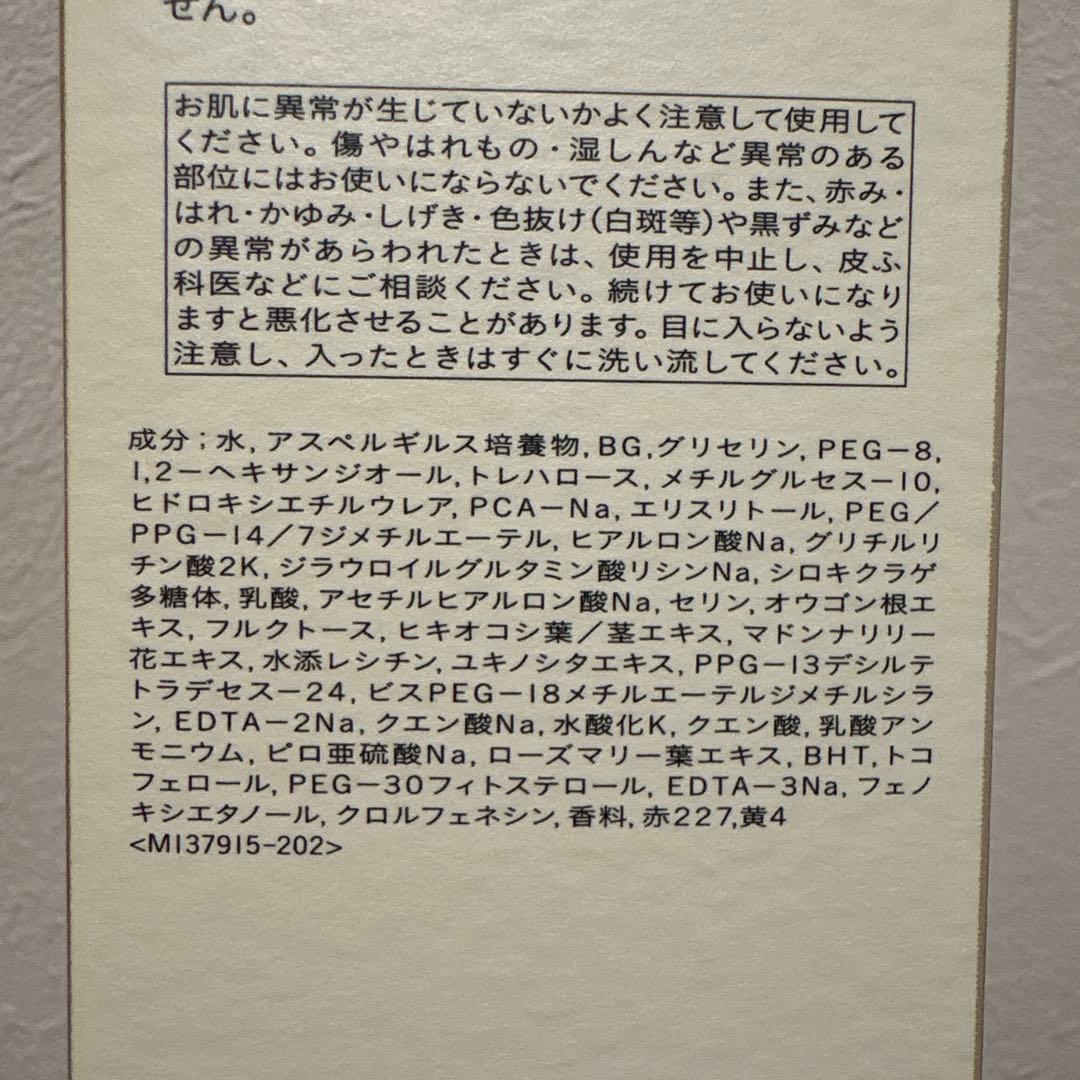 せん。
お肌に異常が生じていないかよく注意して使用して
ください。傷やはれもの・湿しんなど異常のある
部位にはお使いにならないでください。また、赤み・
はれ・かゆみ・しげき・色抜け(白斑等)や黒ずみなど
の異常があらわれたときは、使用を中止し、皮ふ
科医などにご相談ください。続けてお使いになり
ますと悪化させることがあります。目に入らないよう
注意し、入ったときはすぐに洗い流してください。
成分;水,アスペルギルス培養物,BG,グリセリン,PEG-8,
1,2-ヘキサンジオール,トレハロース,メチルグルセス-10,
ヒドロキシエチルウレア,PCA-Na,エリスリトール,PEG/
PPG-14/7ジメチルエーテル,ヒアルロン酸Na,グリチルリ
チン酸2K,ジラウロイルグルタミン酸リシンNa,シロキクラゲ
多糖体,乳酸,アセチルヒアルロン酸Na,セリン,オウゴン根エ
キス,フルクトース,ヒキオコシ葉/茎エキス,マドンナリリー
花エキス,水添レシチン,ユキノシタエキス,PPG-13デシルテ
トラデセス-24,ビスPEG-18メチルエーテルジメチルシラ
ン,EDTA-2Na,クエン酸Na,水酸化K,クエン酸,乳酸アン
モニウム,ピロ亜硫酸Na,ローズマリー葉エキス,BHT,トコ
フェロール,PEG-30フィトステロール,EDTA-3Na,フェノ
キシエタノール,クロルフェネシン,香料,赤227,黄4
<M137915-202>